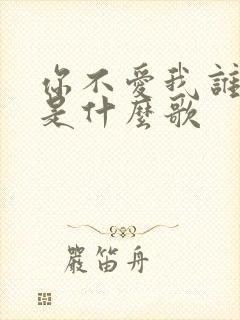 你不愛我誰
是什麼歌
嚴笛舟